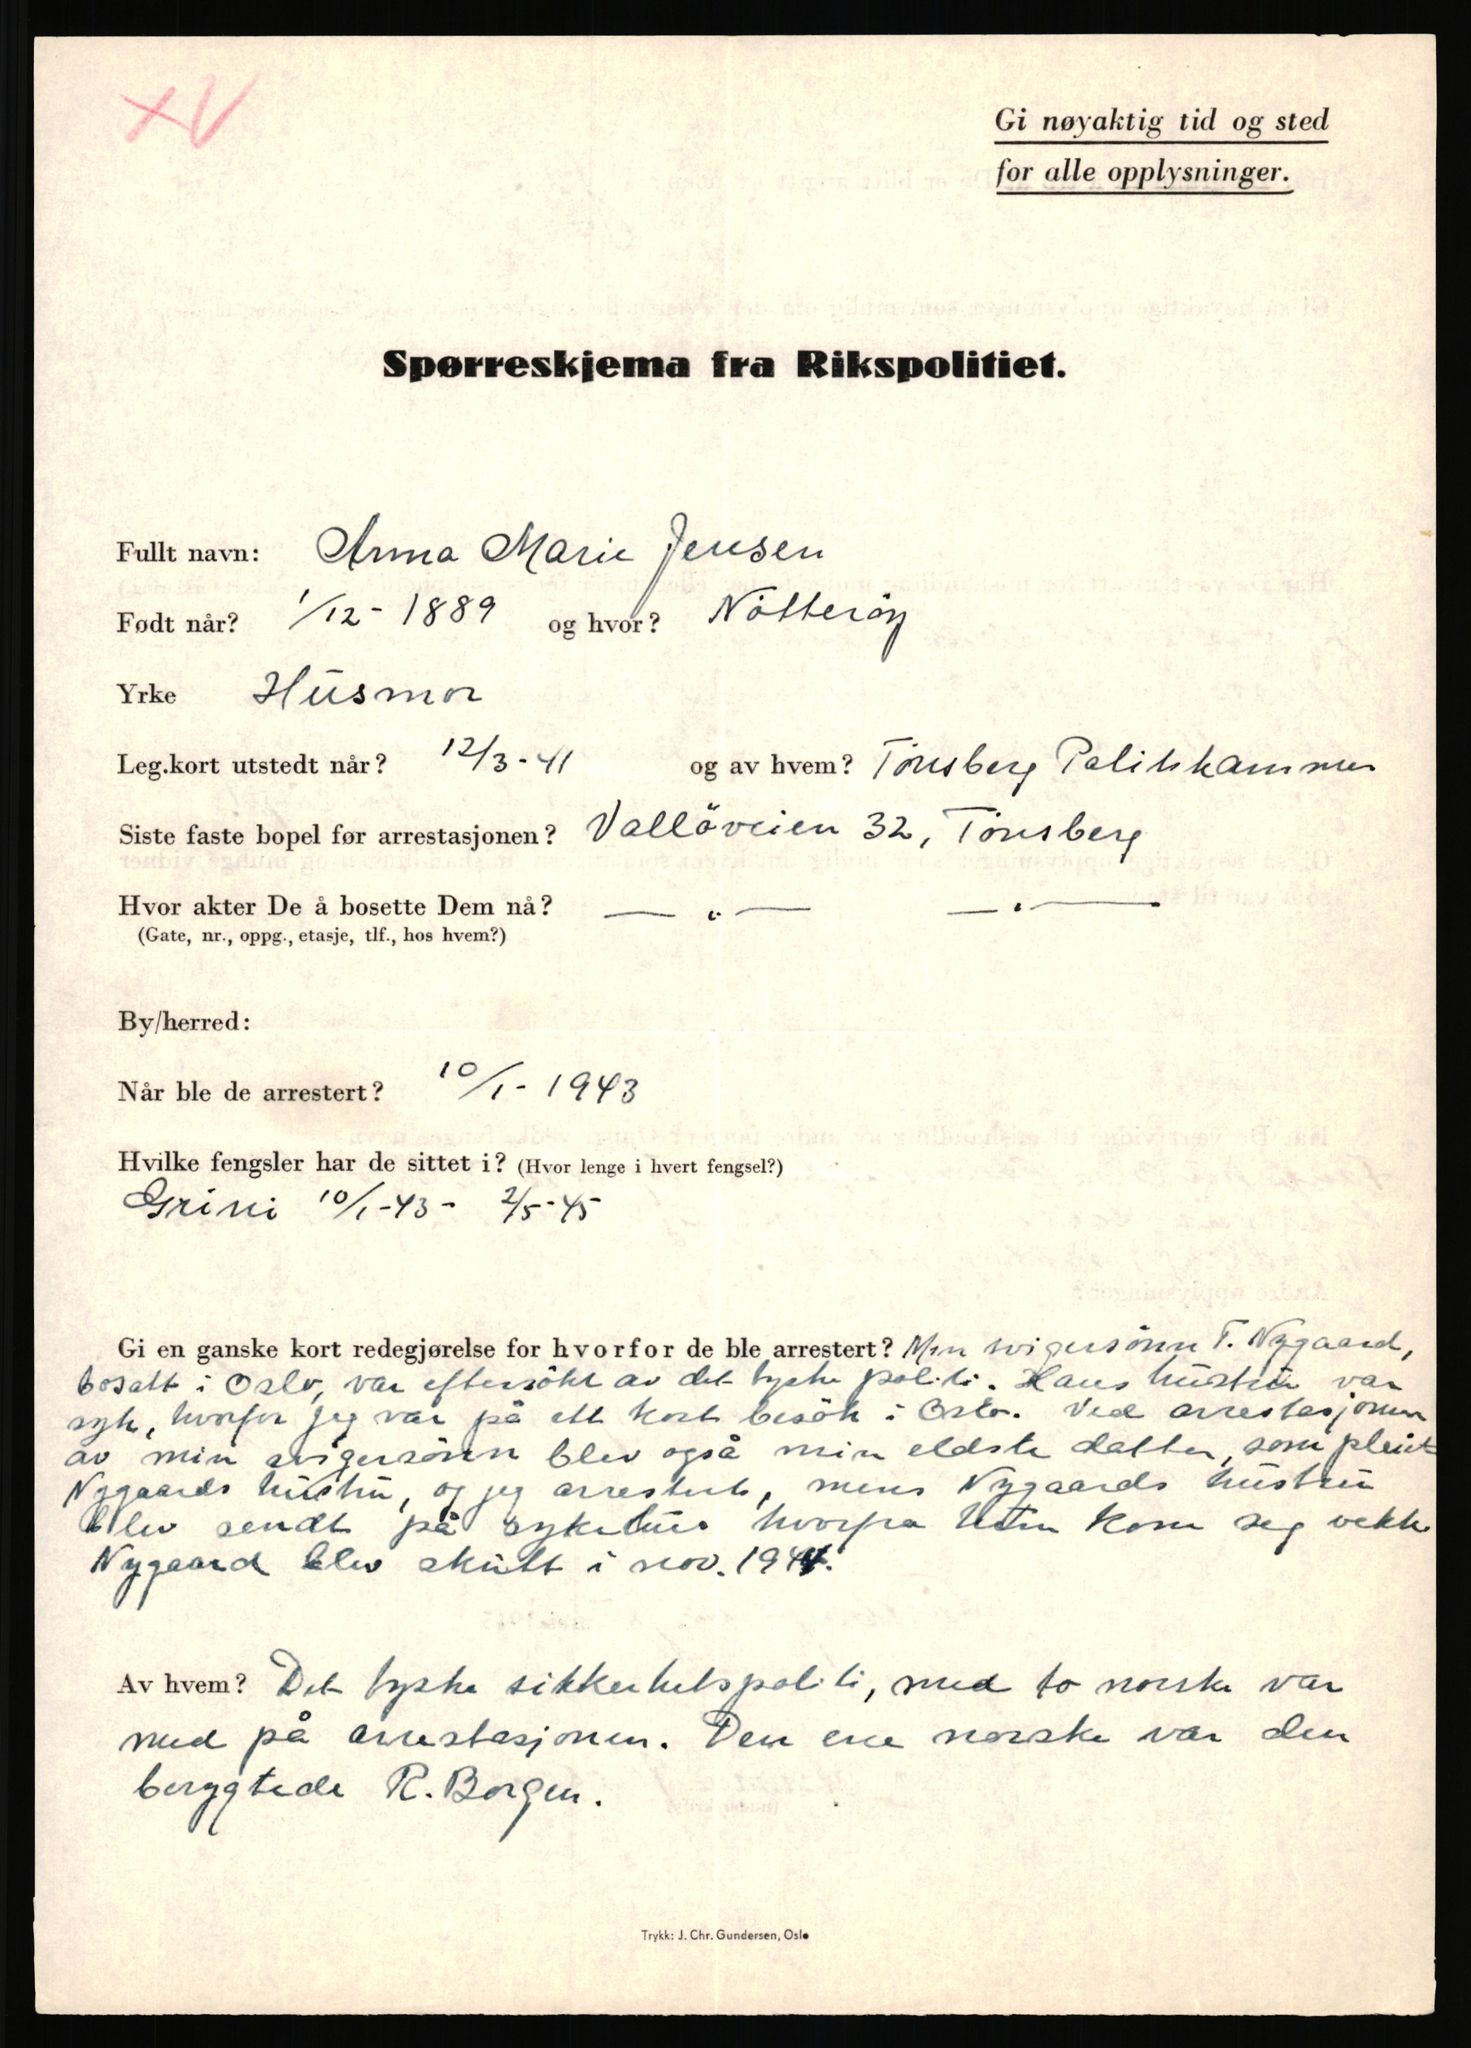 XV
Gi nøyaktig tid og sted
for alle opplysninger.
Spørreskjema fra Rikspolitiet.
Fullt navn: Anna Marie Jensen
Født når? 1/12 - 1889 og hvor? Nötteröy
Yrke Husmor
Leg.kort utstedt når? 12/3 - 41 og av hvem? Tönsberg Politikammer
Siste faste bopel før arrestasjonen? Vallöveien 32, Tönsberg
Hvor akter De å bosette Dem nå? — " — — " —
(Gate, nr., oppg., etasje, tlf., hos hvem?)
By/herred:
Når ble de arrestert? 10/1 - 1943
Hvilke fengsler har de sittet i? (Hvor lenge i hvert fengsel?)
Grini 10/1-43 - 2/5-45
Gi en ganske kort redegjørelse for hvorfor de ble arrestert? Min svigersönn T. Nygaard,
bosatt i Oslo, var eftersökt av det tyske politi. Hans hustru var
syk, hvorfor jeg var på ett kort besök i Oslo. Ved arrestasjonen
av min svigersönn blev også min eldste datter, som pleiet
Nygaards hustru, og jeg arrestert, mens Nygaards hustru
blev sendt på sykehus hvorfra hun kom seg vekk.
Nygaard blev skutt i nov. 1944.
Av hvem? Det tyske sikkerhetspoliti, med to norske var
med på arrestasjonen. Den ene norske var den
berygtede R. Borgen.
Trykk: J. Chr. Gundersen, Oslo